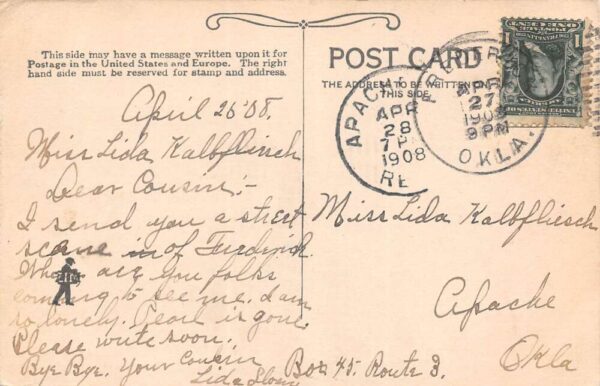 This side may have a message written upon it for
Postage in the United States and Europe. The right
hand side must be reserved for stamp and address.
April 26 '08.
Miss Lida Kalbfliesch
Dear Cousin:-
I send you a street
scene in of Frederick.
When are you folks
coming to see me. I am
so lonely. Pearl is gone.
Please write soon.
Bye Bye. Your Cousin
Lida
POST CARD
THE ADDRESS TO BE WRITTEN ON
THIS SIDE.
APACHE
APR
28
7 P
1908
RE
APR
27
1908
9 PM
OKLA.
1
Miss Lida Kalbfliesch
Apache
Box 45. Route 3. Okla